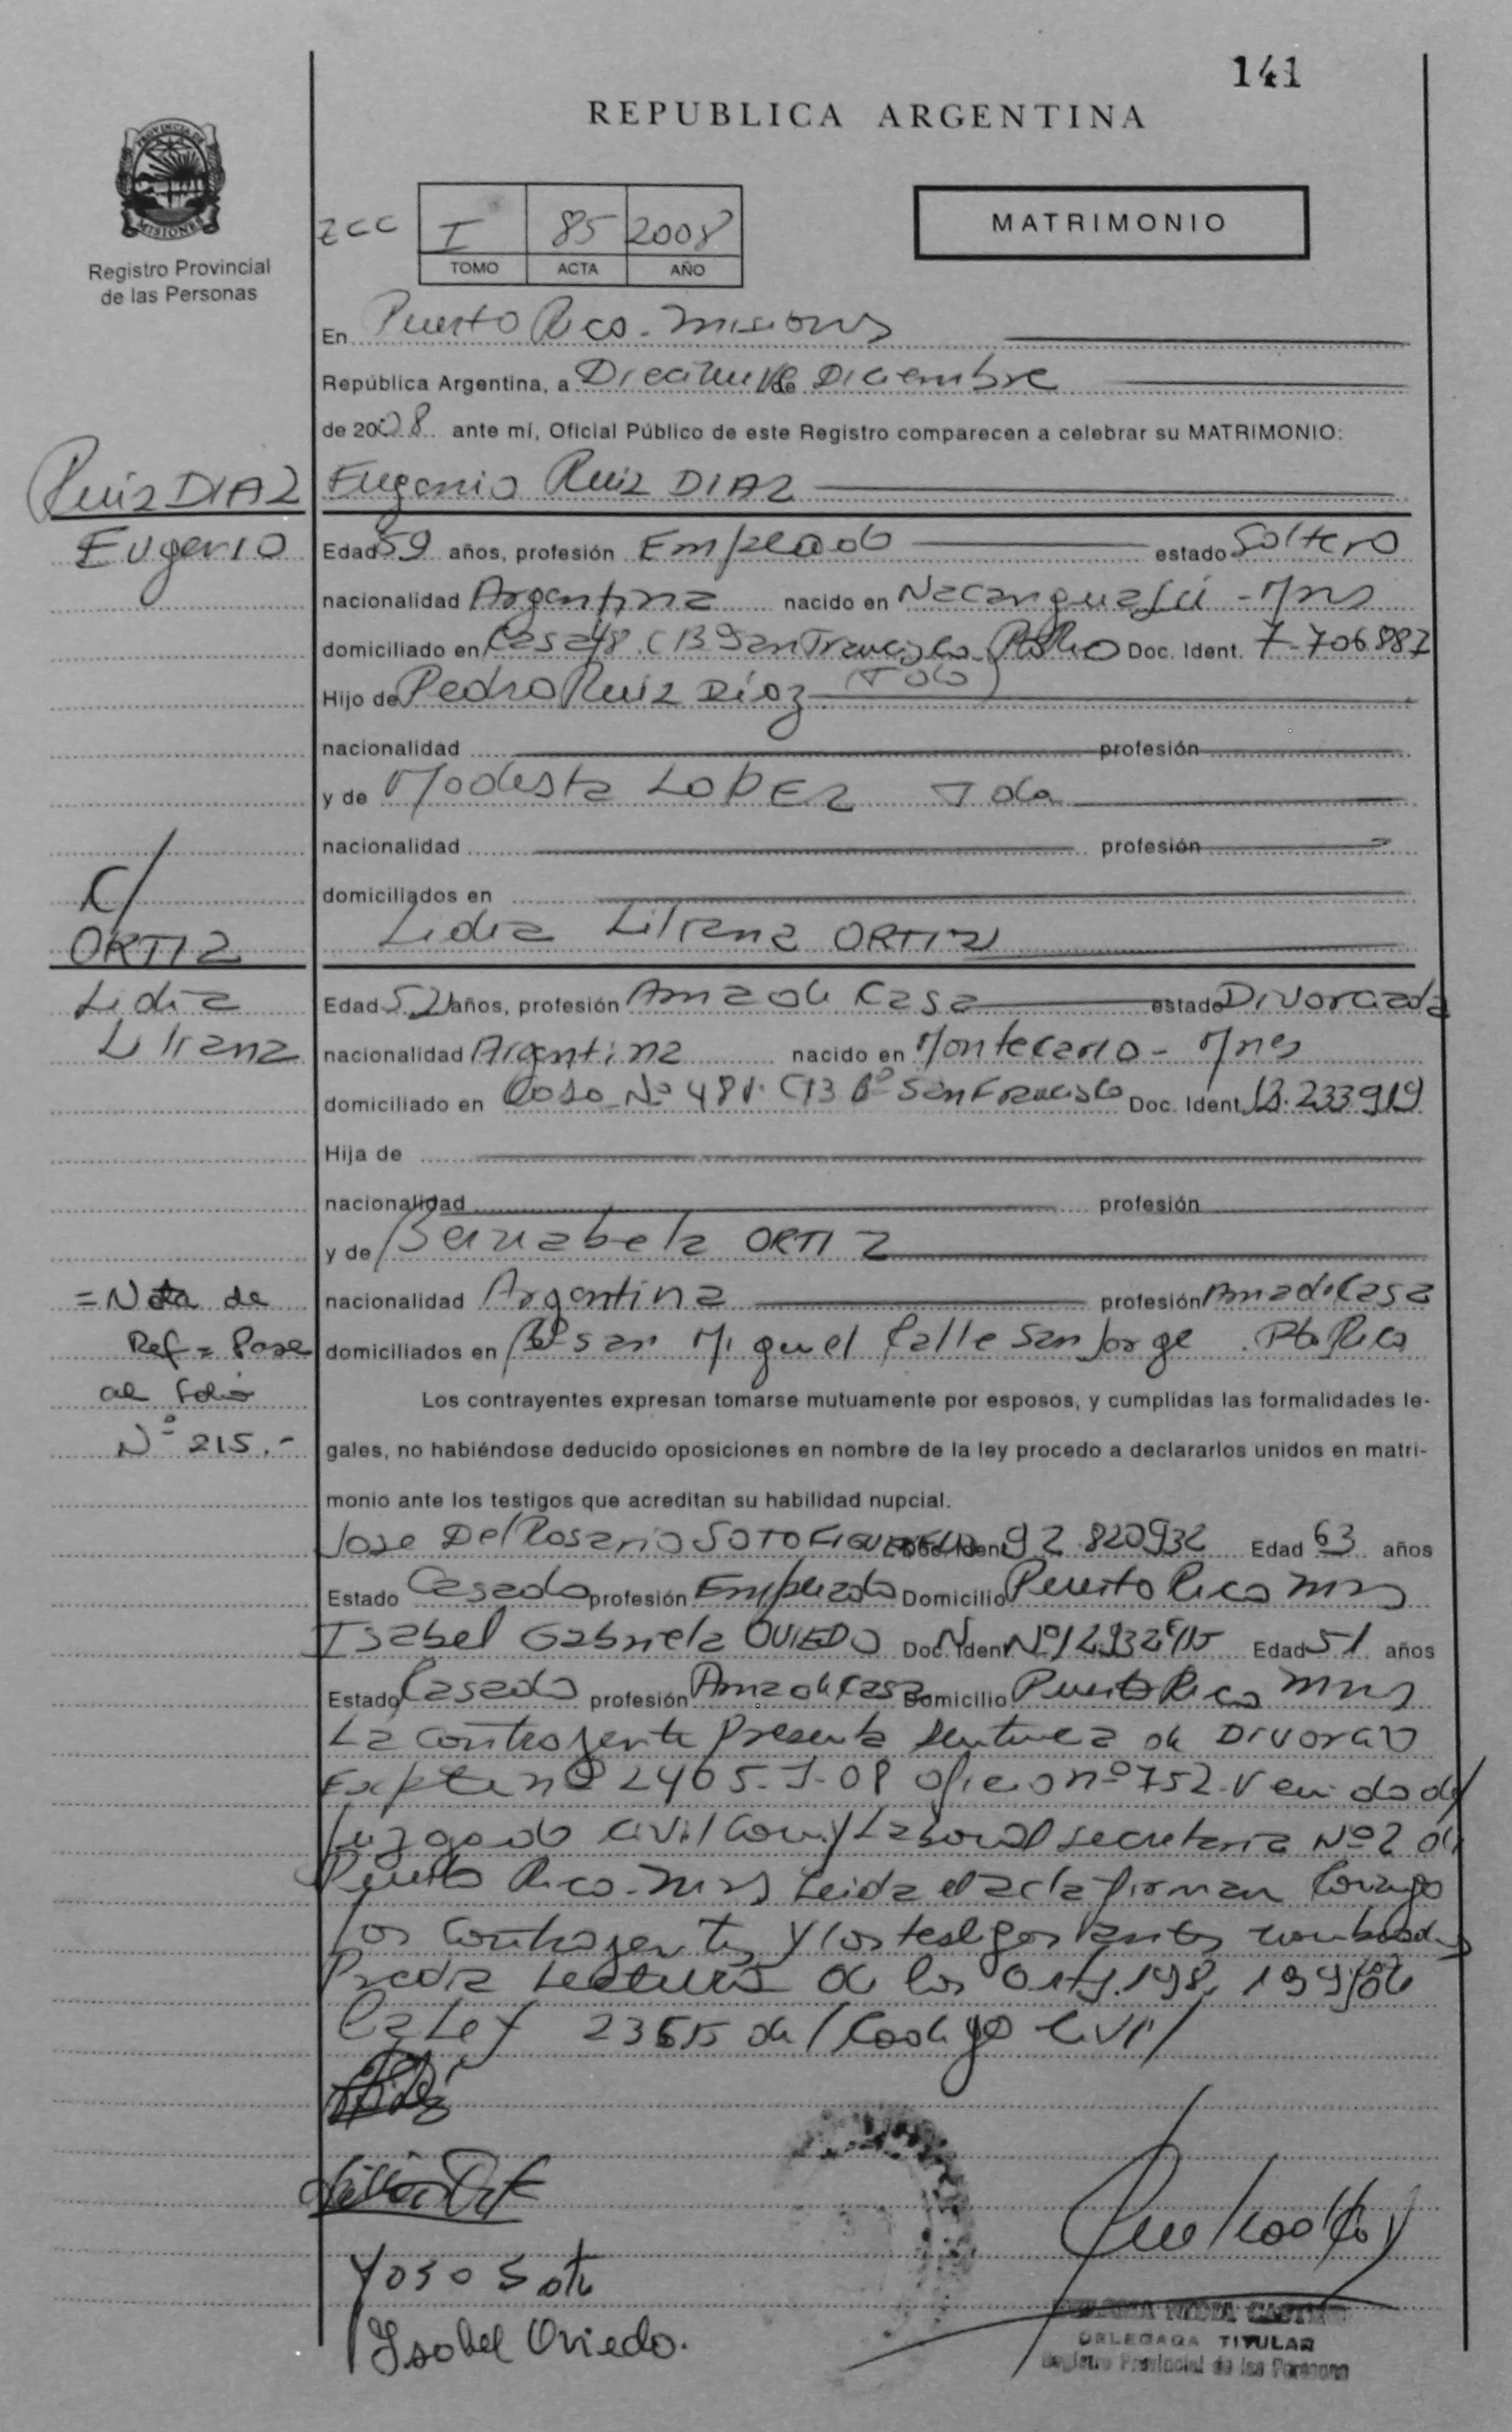 141
REPUBLICA ARGENTINA
PROVINCIA DE
MISIONES
Registro Provincial
de las Personas
ZCC I 85 2008
TOMO ACTA AÑO
MATRIMONIO
En Puerto Rico - Misiones
República Argentina, a de Diciembre
de 2008 ante mí, Oficial Público de este Registro comparecen a celebrar su MATRIMONIO:
Ruiz DIAZ
Eugenio
Eugenio Ruiz DIAZ
Edad 59 años, profesión Empleado estado Soltero
nacionalidad Argentina nacido en Ñacanguazú - Mns
domiciliado en Casa 48 San Francisco Doc. Ident. 7.706.887
Hijo de Pedro Ruiz Díaz (Fdo)
nacionalidad profesión
y de Modesta LOPEZ Fda
nacionalidad profesión
domiciliados en
C/
ORTIZ
Lidia
Liliana
Lidia Liliana ORTIZ
Edad 52 años, profesión Ama de Casa estado Divorciada
nacionalidad Argentina nacido en Montecarlo - Mnes
domiciliado en Casa Nº 48 Bº San Francisco Doc. Ident. 13.233.919
Hija de
nacionalidad profesión
y de Bernabela ORTIZ
nacionalidad Argentina profesión Ama de Casa
domiciliados en Bº San Miguel Calle San Jorge Pto Rico
= Nota de
Ref = Pase
al folio
Nº 215.-
Los contrayentes expresan tomarse mutuamente por esposos, y cumplidas las formalidades le-
gales, no habiéndose deducido oposiciones en nombre de la ley procedo a declararlos unidos en matri-
monio ante los testigos que acreditan su habilidad nupcial.
Jose Del Rosario SOTO Doc. Ident 92.820932 Edad 63 años
Estado Casado profesión Empleado Domicilio Puerto Rico Mns
Isabel Gabriela OVIEDO Doc. Ident Nº Edad 51 años
Estado Casada profesión Ama de Casa Domicilio Puerto Rico Mns
La contrayente presenta sentencia de Divorcio
Expte nº 2405-J-08 oficio nº 752. Venido del
Juzgado Civil Com. y Laboral Secretaria Nº 2 de
Puerto Rico - Mns Leida el acta firman conmigo
los contrayentes y los testigos antes nombrados
Previa Lectura de los arts. 198, 199 de
la Ley 23515 del Codigo Civil
Isabel Oviedo.
DELEGADA TITULAR
Registro Provincial de las Personas